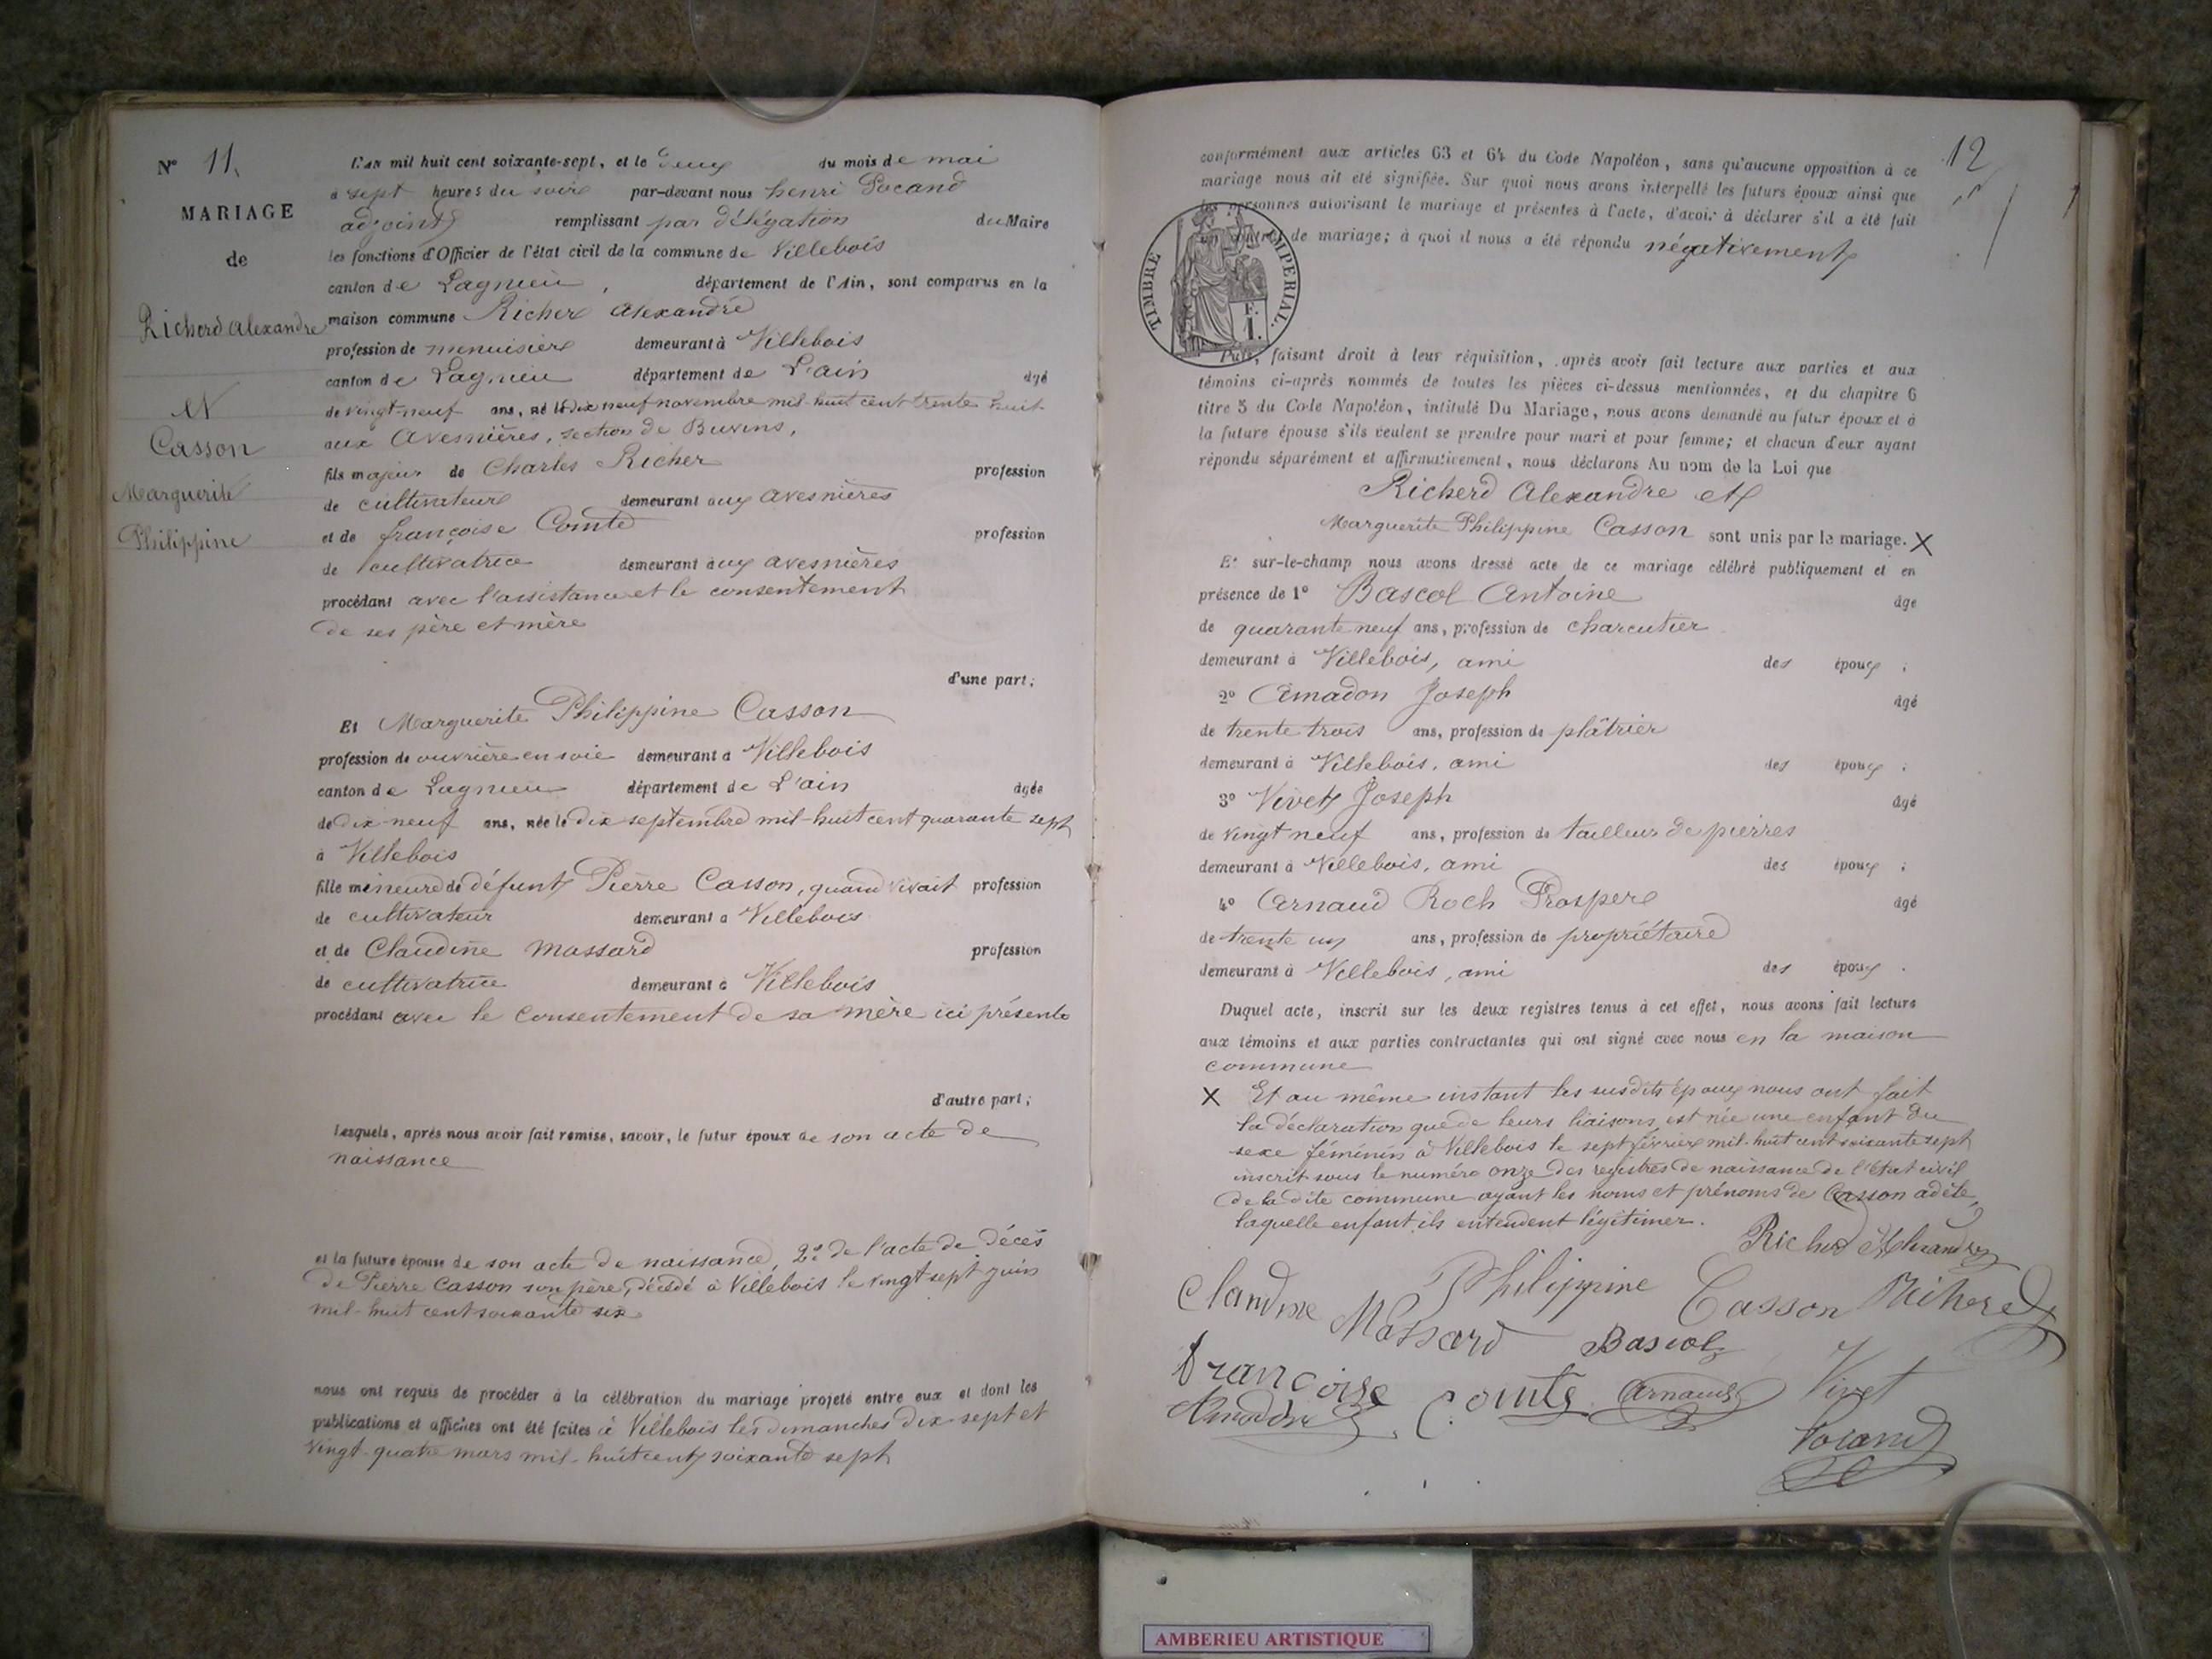 N° 11.
MARIAGE
de
Richerd Alexandre
Et
Casson
Marguerite
Philippine
L'an mil huit cent soixante-sept, et le deux du mois de mai
à sept heures du soir par-devant nous henri Pocand
adjoint remplissant par délégation du Maire
les fonctions d'Officier de l'état civil de la commune de Villebois
canton de Lagnieu, département de l'Ain, sont comparus en la
maison commune Richer Alexandre
profession de menuisier demeurant à Villebois
canton de Lagnieu département de L'ain âgé
de vingt neuf ans, né le dix neuf novembre mil-huit cent trente huit
aux Avesnières, section de Buvins,
fils majeur de Charles Richer profession
de cultivateur demeurant aux avesnières
et de françoise Comte profession
de cultivatrice demeurant aux avesnières
procédant avec l'assistance et le consentement
de ses père et mère
d'une part;
Et Marguerite Philippine Casson
profession de ouvrière en soie demeurant à Villebois
canton de Lagnieu département de L'ain âgée
de dix neuf ans, née le dix septembre mil-huit cent quarante sept
à Villebois
fille mineure de défunt Pierre Casson, quand vivait profession
de cultivateur demeurant a Villebois
et de Claudine Massard profession
de cultivatrice demeurant à Villebois
procédant avec le consentement de sa mère ici présente
d'autre part;
Lesquels, après nous avoir fait remise, savoir, le futur époux de son acte de
naissance
et la future épouse de son acte de naissance, 2° de l'acte de décès
de Pierre Casson son père, décédé à Villebois le vingt sept juin
mil-huit cent soixante six
nous ont requis de procéder à la célébration du mariage projeté entre eux et dont les
publications et affiches ont été faites à Villebois les dimanches dix-sept et
vingt-quatre mars mil-huit cent soixante sept
12
conformément aux articles 63 et 64 du Code Napoléon, sans qu'aucune opposition à ce
mariage nous ait été signifiée. Sur quoi nous avons interpellé les futurs époux ainsi que
les personnes autorisant le mariage et présentes à l'acte, d'avoir à déclarer s'il a été fait
un contrat de mariage; à quoi il nous a été répondu négativement
TIMBRE IMPERIAL.
F.
1.
Puis, faisant droit à leur réquisition, après avoir fait lecture aux parties et aux
témoins ci-après nommés de toutes les pièces ci-dessus mentionnées, et du chapitre 6
titre 5 du Code Napoléon, intitulé Du Mariage, nous avons demandé au futur époux et à
la future épouse s'ils veulent se prendre pour mari et pour femme; et chacun d'eux ayant
répondu séparément et affirmativement, nous déclarons Au nom de la Loi que
Richerd Alexandre et
Marguerite Philippine Casson sont unis par le mariage. X
Et sur-le-champ nous avons dressé acte de ce mariage célébré publiquement et en
présence de 1° Bascol Antoine âge
de quarante neuf ans, profession de charcutier
demeurant à Villebois, ami des époux ;
2° Amadon Joseph âgé
de trente trois ans, profession de plâtrier
demeurant à Villebois, ami des époux ;
3° Vivet Joseph âgé
de vingt neuf ans, profession de tailleur de pierres
demeurant à Villebois, ami des époux ;
4° Arnaud Roch Prosper âgé
de trente un ans, profession de propriétaire
demeurant à Villebois, ami des époux .
Duquel acte, inscrit sur les deux registres tenus à cet effet, nous avons fait lecture
aux témoins et aux parties contractantes qui ont signé avec nous en la maison
commune
X Et au même instant les susdits époux nous ont fait
la déclaration que de leurs liaisons est née une enfant du
sexe féminin à Villebois le sept février mil-huit cent soixante sept
inscrit sous le numéro onze des registres de naissance de l'état civil
de la dite commune ayant les noms et prénoms de Casson adèle,
laquelle enfant ils entendent légitimer.
Richerd Alexandre
Philippine Casson Richerd
Claudine Massard Bascol
françoise Comte Arnaud Vivet
Amadon
Pocand
AMBERIEU ARTISTIQUE